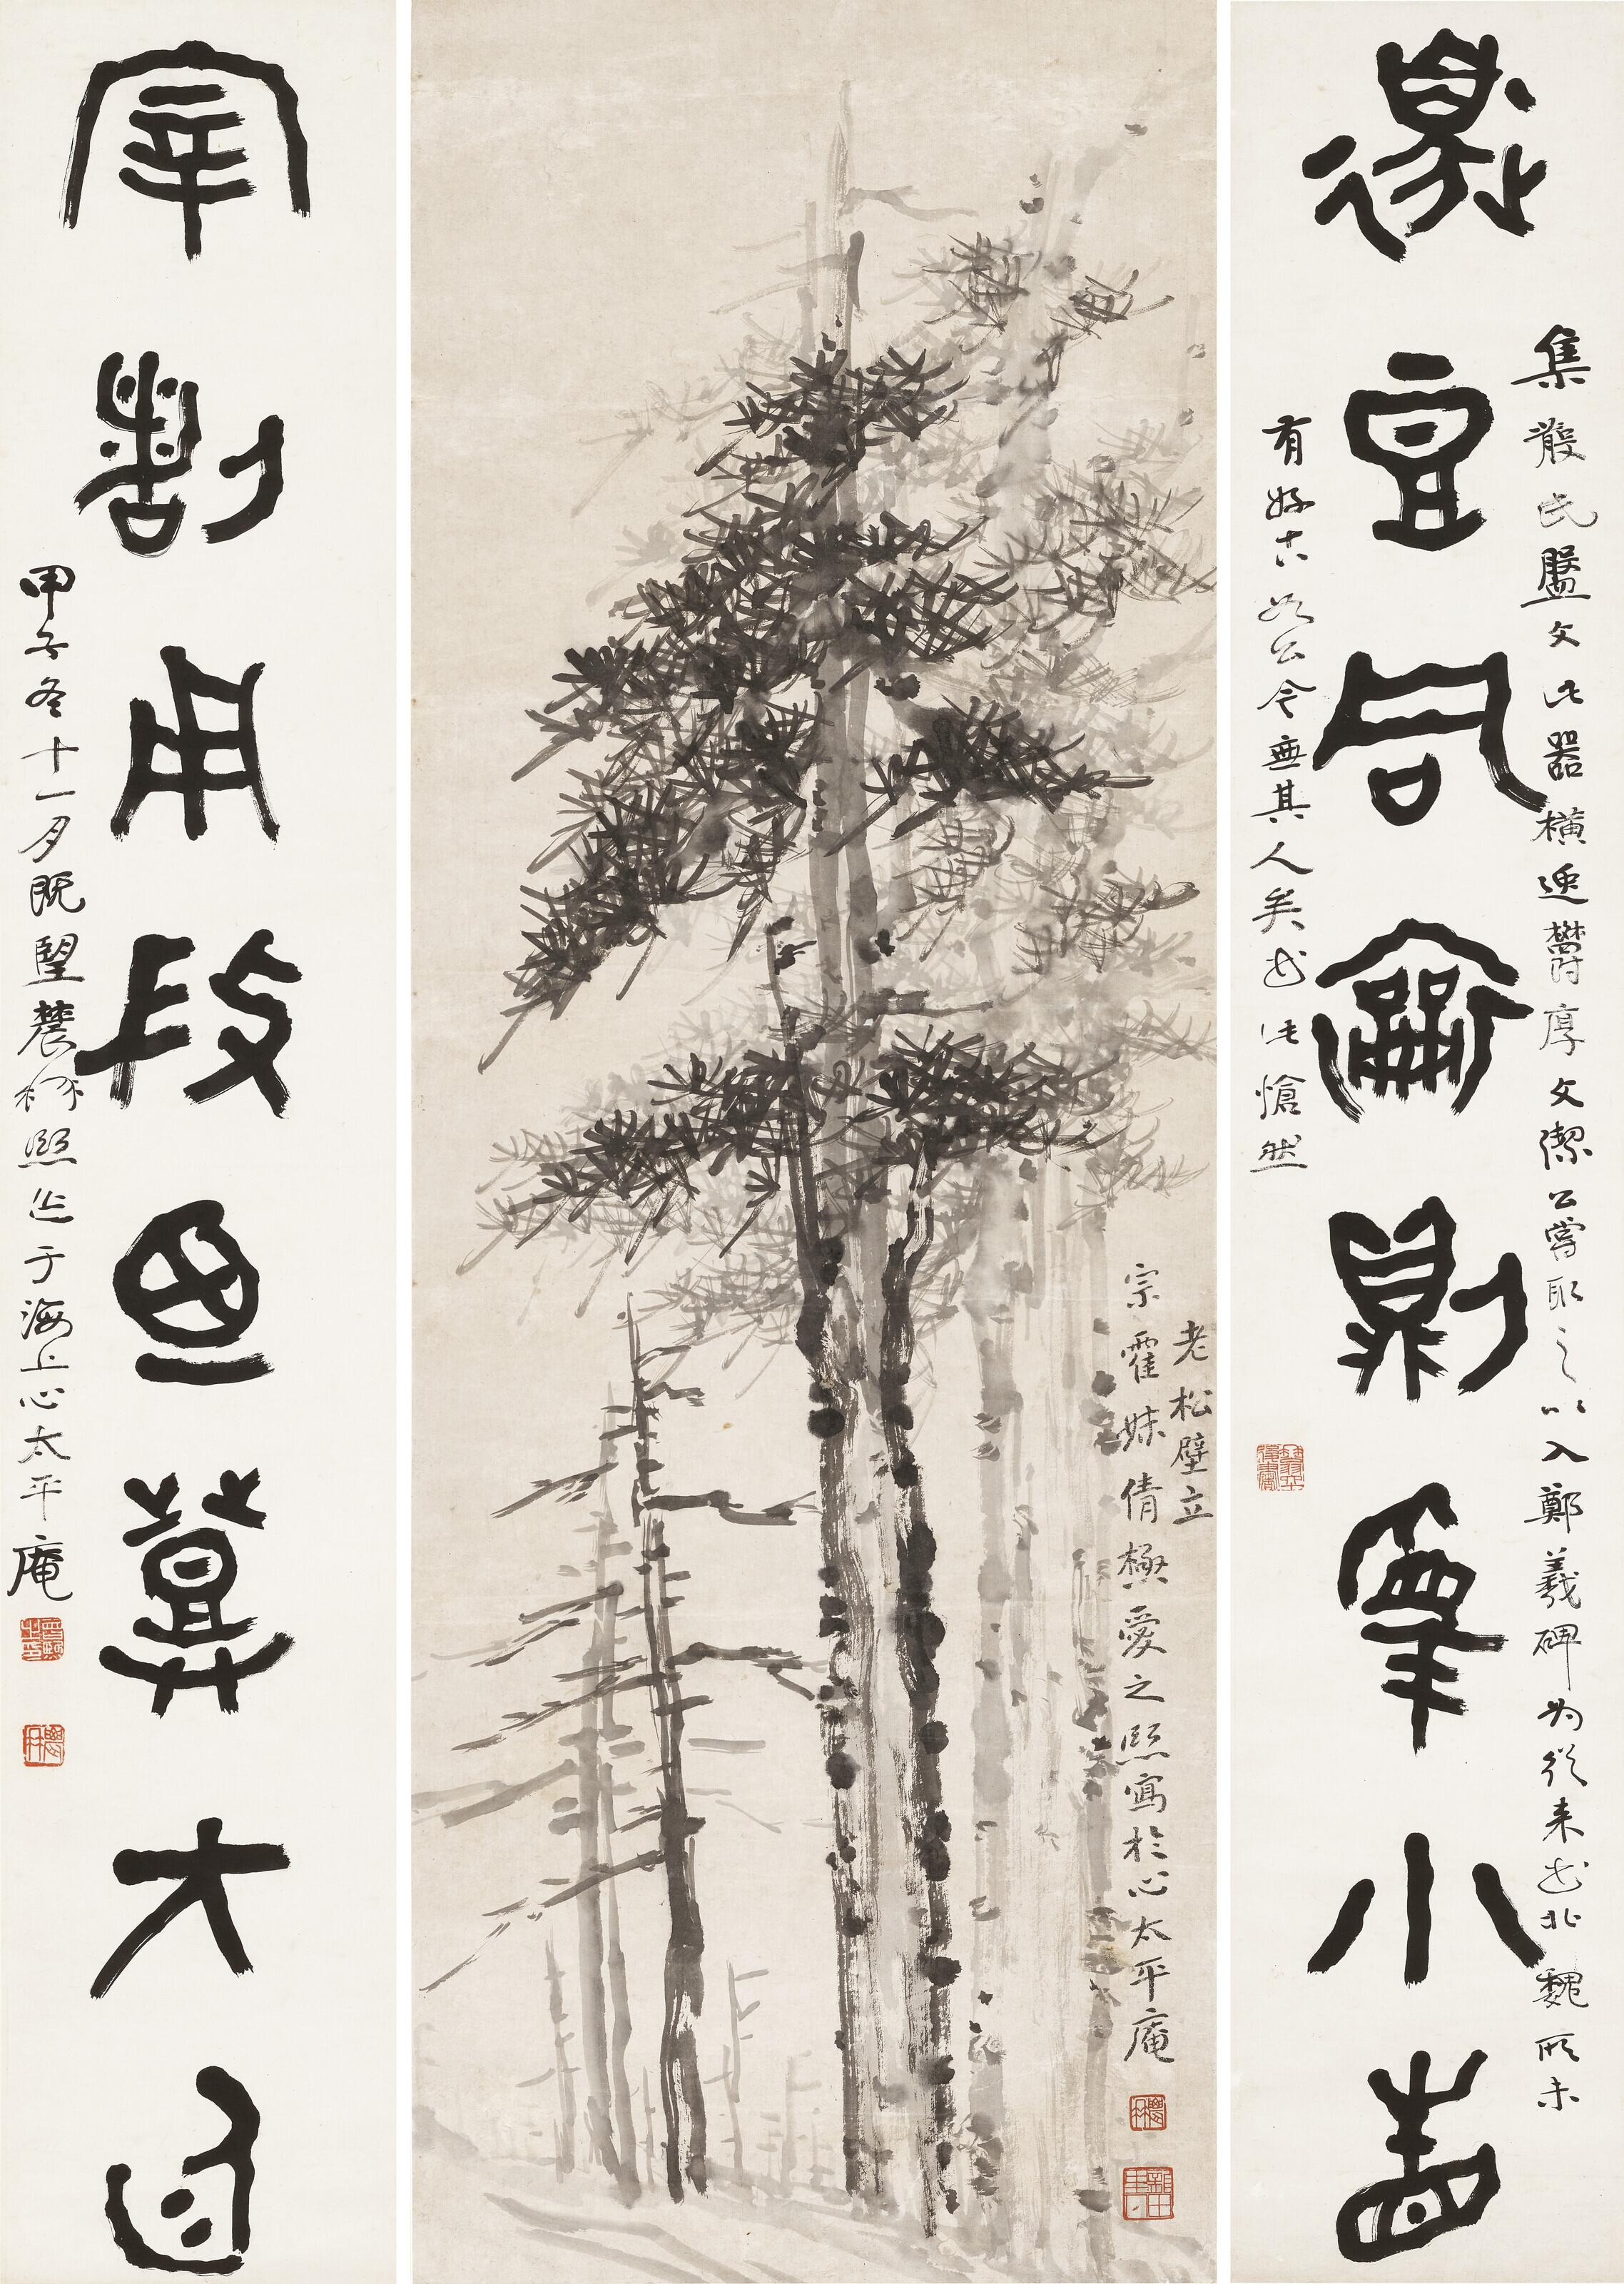 邍豆同龠則肇小
集散氏盤文此器橫逸鬱厚文潔公嘗取之以入鄭羲碑为從来書北魏所未
有好古如公今無其人矣書此愴然
老松壁立
宗霍妹倩極愛之熙寫於心太平庵
宰割用大
甲子冬十一月既望農髯熙作于海上心太平庵